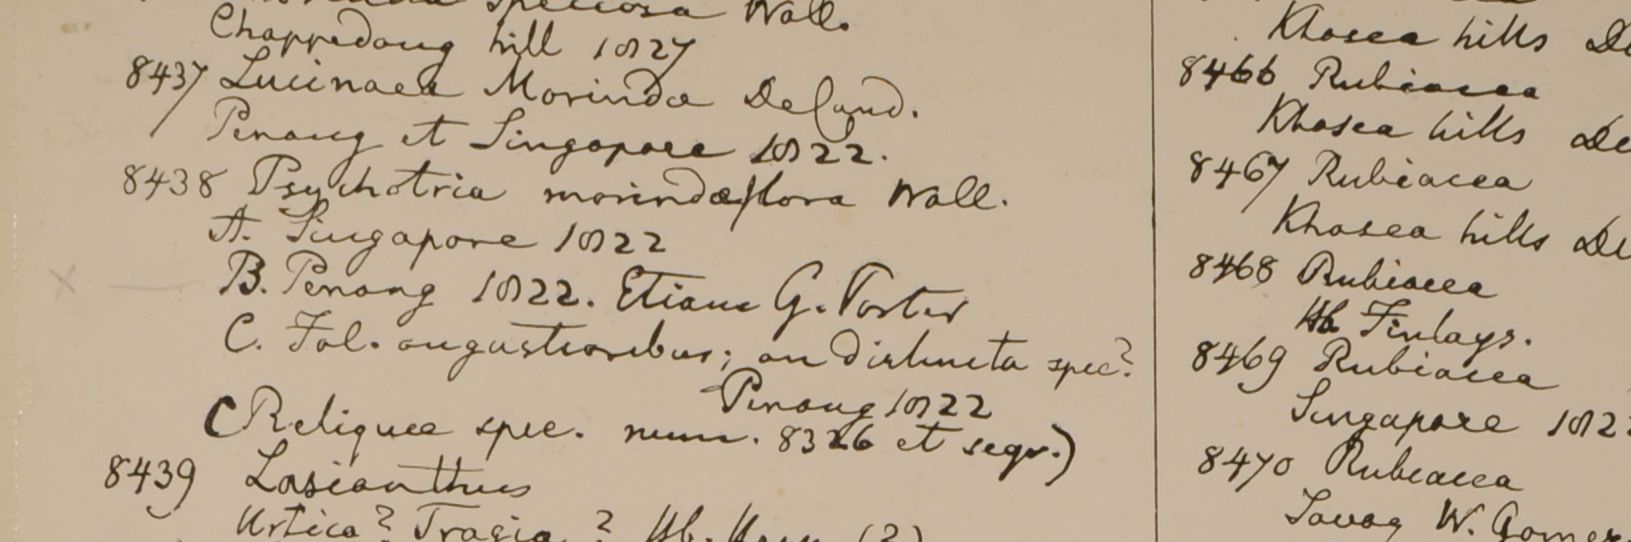 speciosa Wall.
Chappedong hill 1827
8437 Lucinaea Morinda DeCand.
Penang et Singapore 1822.
8438 Psychotria morindaeflora Wall.
A. Singapore 1822
B. Penang 1822. Etiam G. Porter
C. Fol. angustioribus; an distincta spec?
Penang 1822
(Reliquae spec. num. 8326 et seqv.)
8439 Lasianthus
Urtica? Tragia? Hb. (?)
Khasea hills De
8466 Rubiacea
Khasea hills De
8467 Rubiacea
Khasea hills De
8468 Rubiacea
Hb Finlays.
8469 Rubiacea
Singapore 1822
8470 Rubiacea
Tavoy W. Gomez